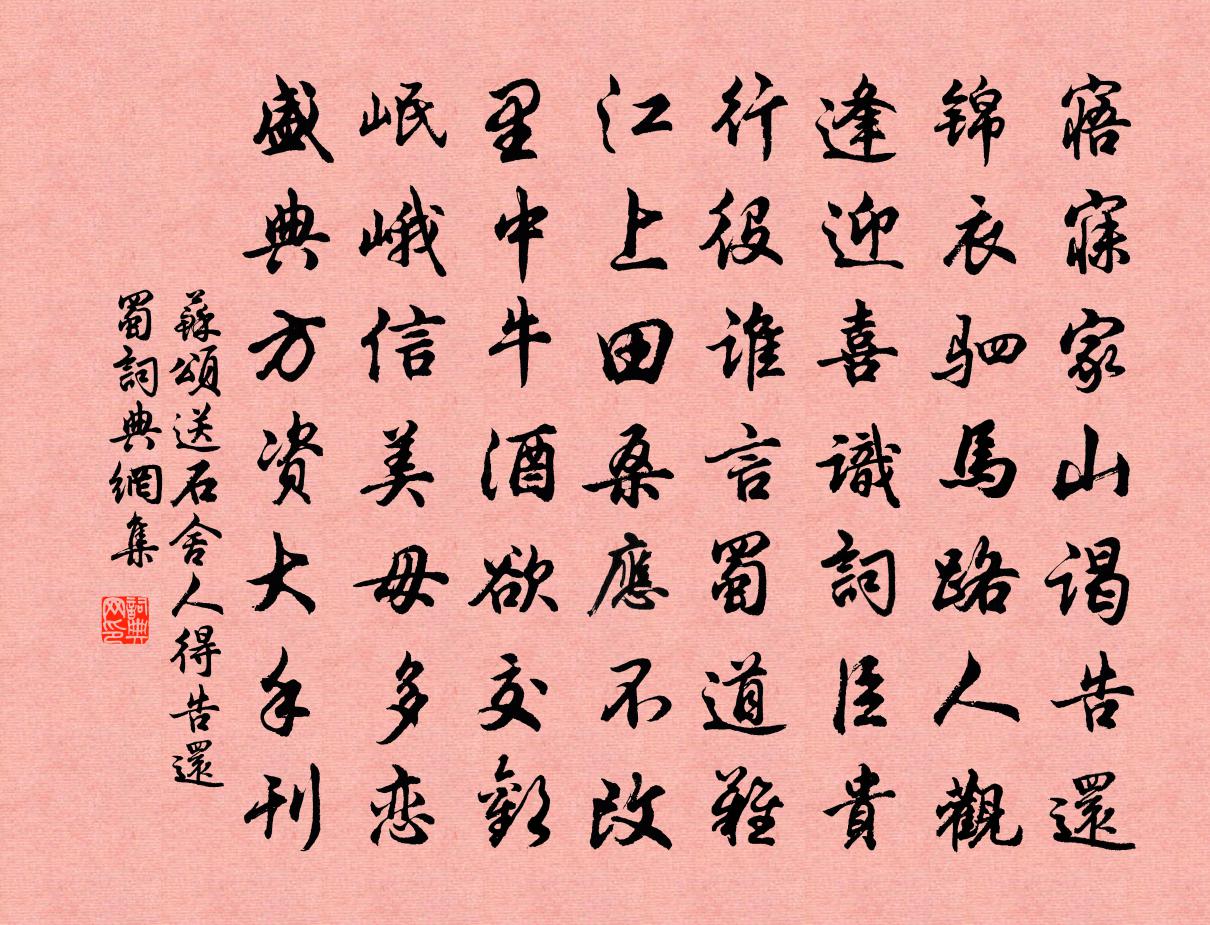 寤寐家山谒告還
锦衣驷馬路人觀
逢迎喜識詞臣貴
行役谁言蜀道難
江上田桑應不改
里中牛酒欲交歡
岷峨信美毋多恋
盛典方资大手刊
蘇頌送石舍人得告還
蜀詞典網集
詞典网印